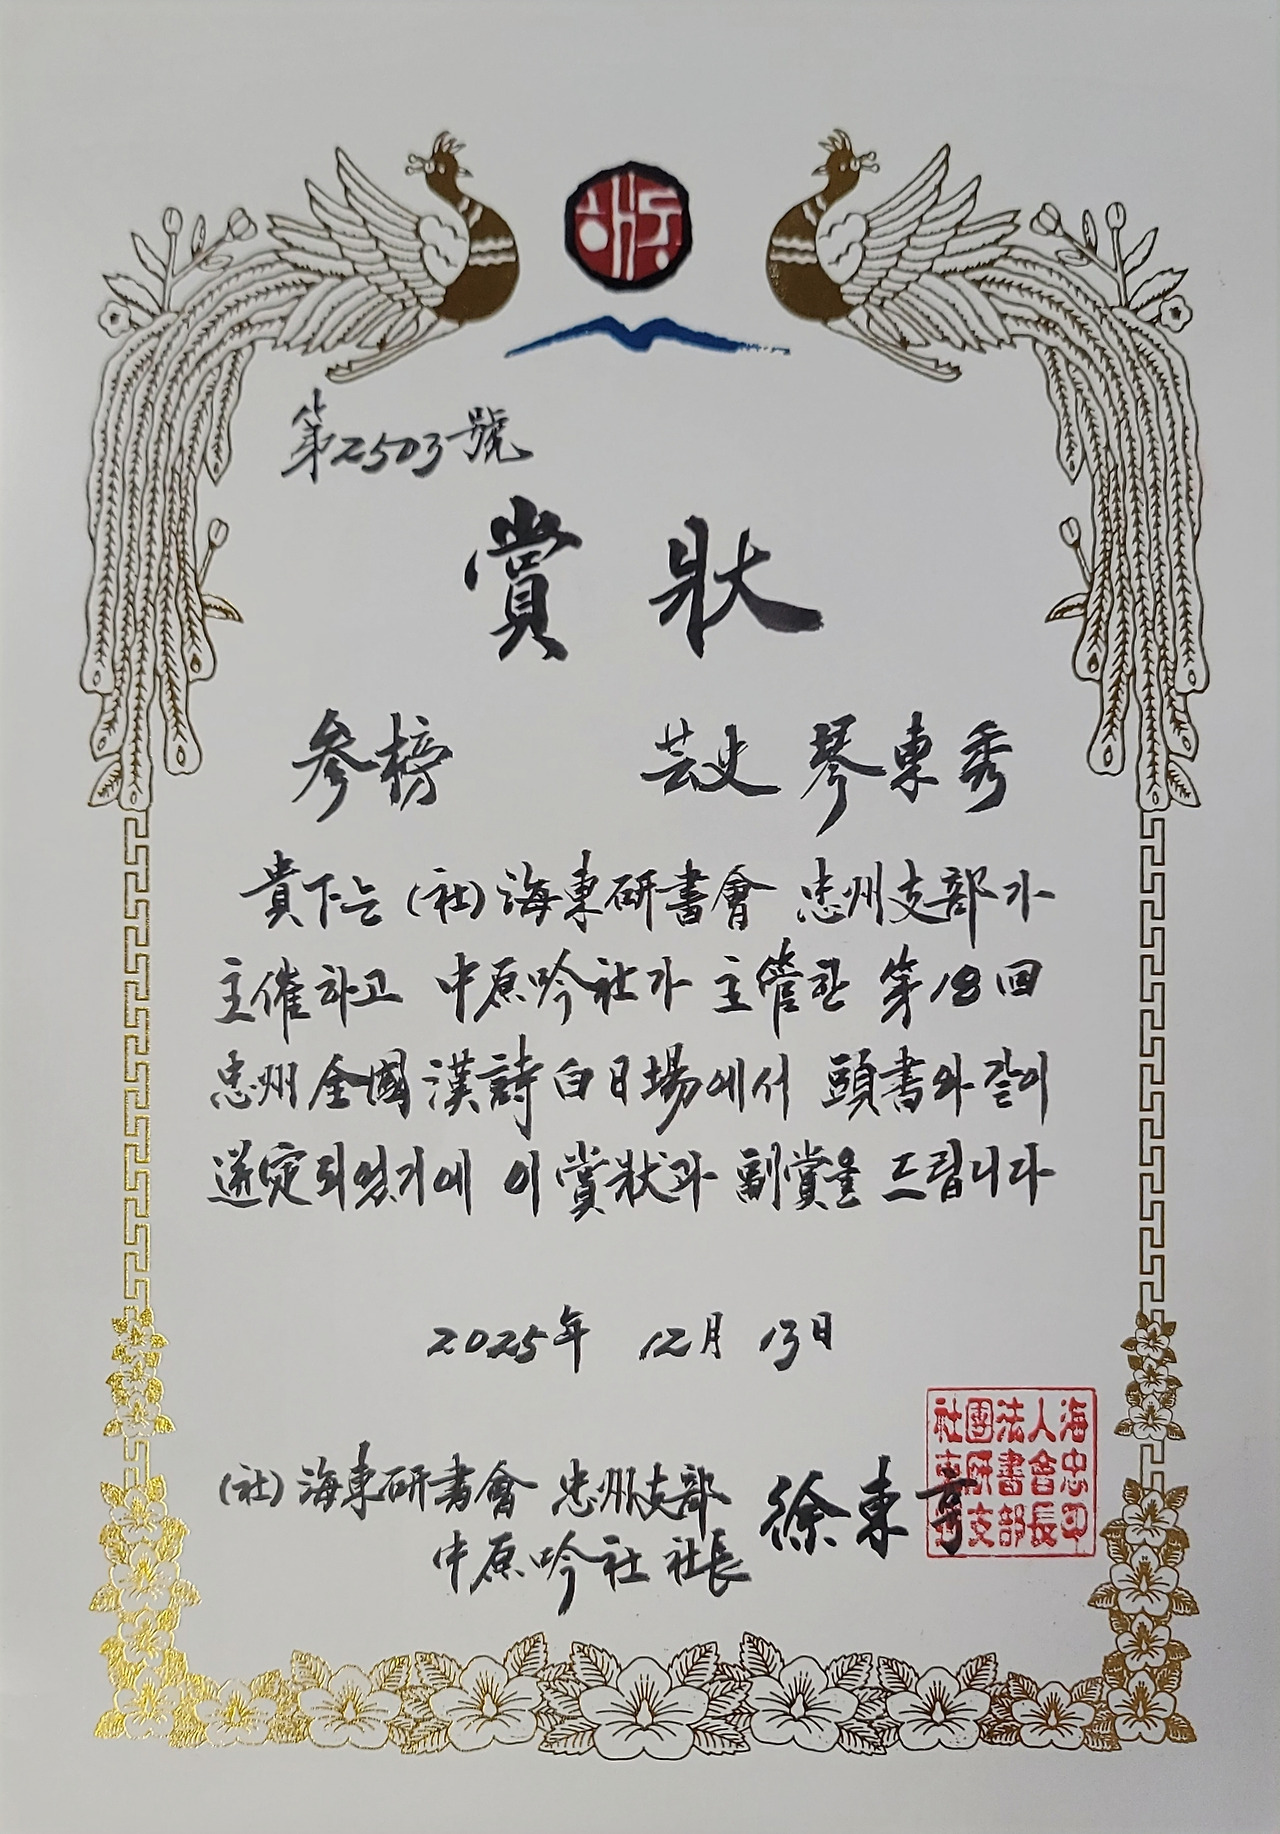 해동
第2503號
賞狀
参榜 芸史 琴東秀
貴下는 (社)海東研書會 忠州支部가
主催하고 中原吟社가 主管한 第18回
忠州全國漢詩白日場에서 頭書와같이
選定되었기에 이 賞狀과 副賞을 드립니다
2025年 12月 13日
(社)海東研書會 忠州支部
中原吟社 社長 徐東
社團法人海
東研書會忠
支部長印